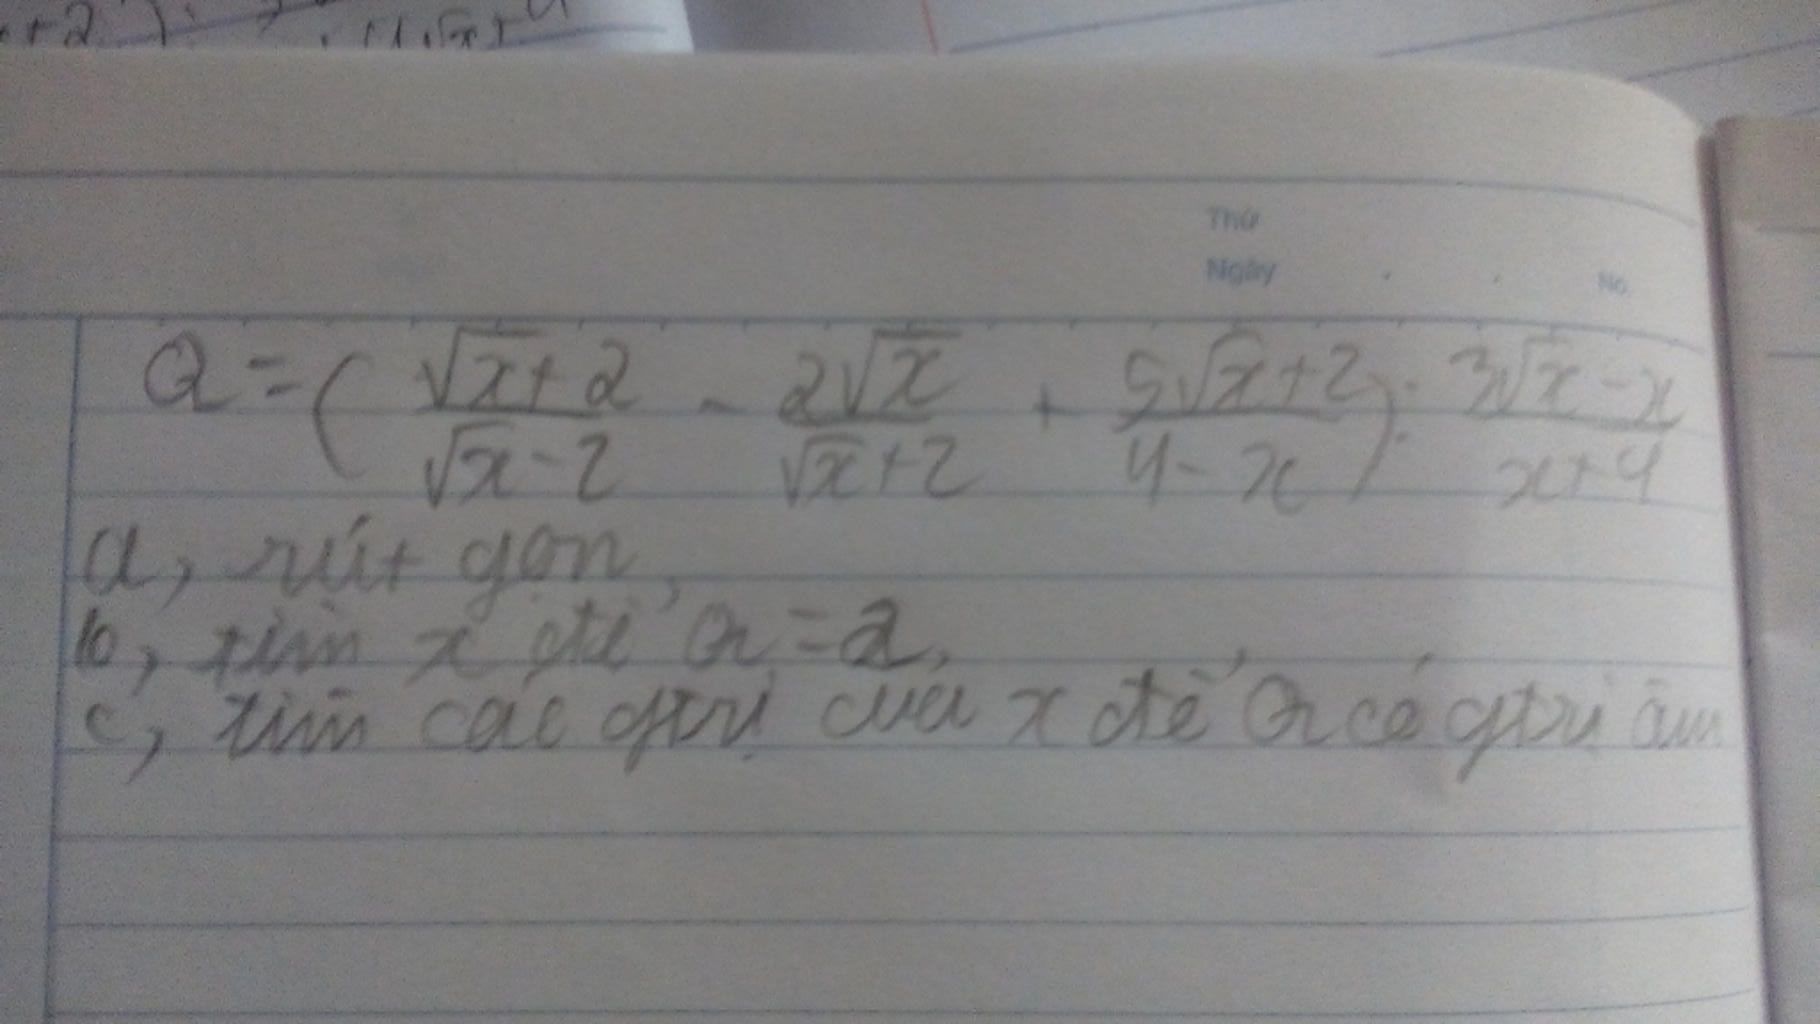 +2 ) : (4√x)
Thứ
Ngày . . No.
Q = ( √x+2 / √x-2 - 2√x / √x+2 + 5√x+2 / 4-x ) : 3√x-x / x+4
a, rút gọn
b, tìm x để Q=2,
c, tìm các gtrị của x để Q có gtrị âm